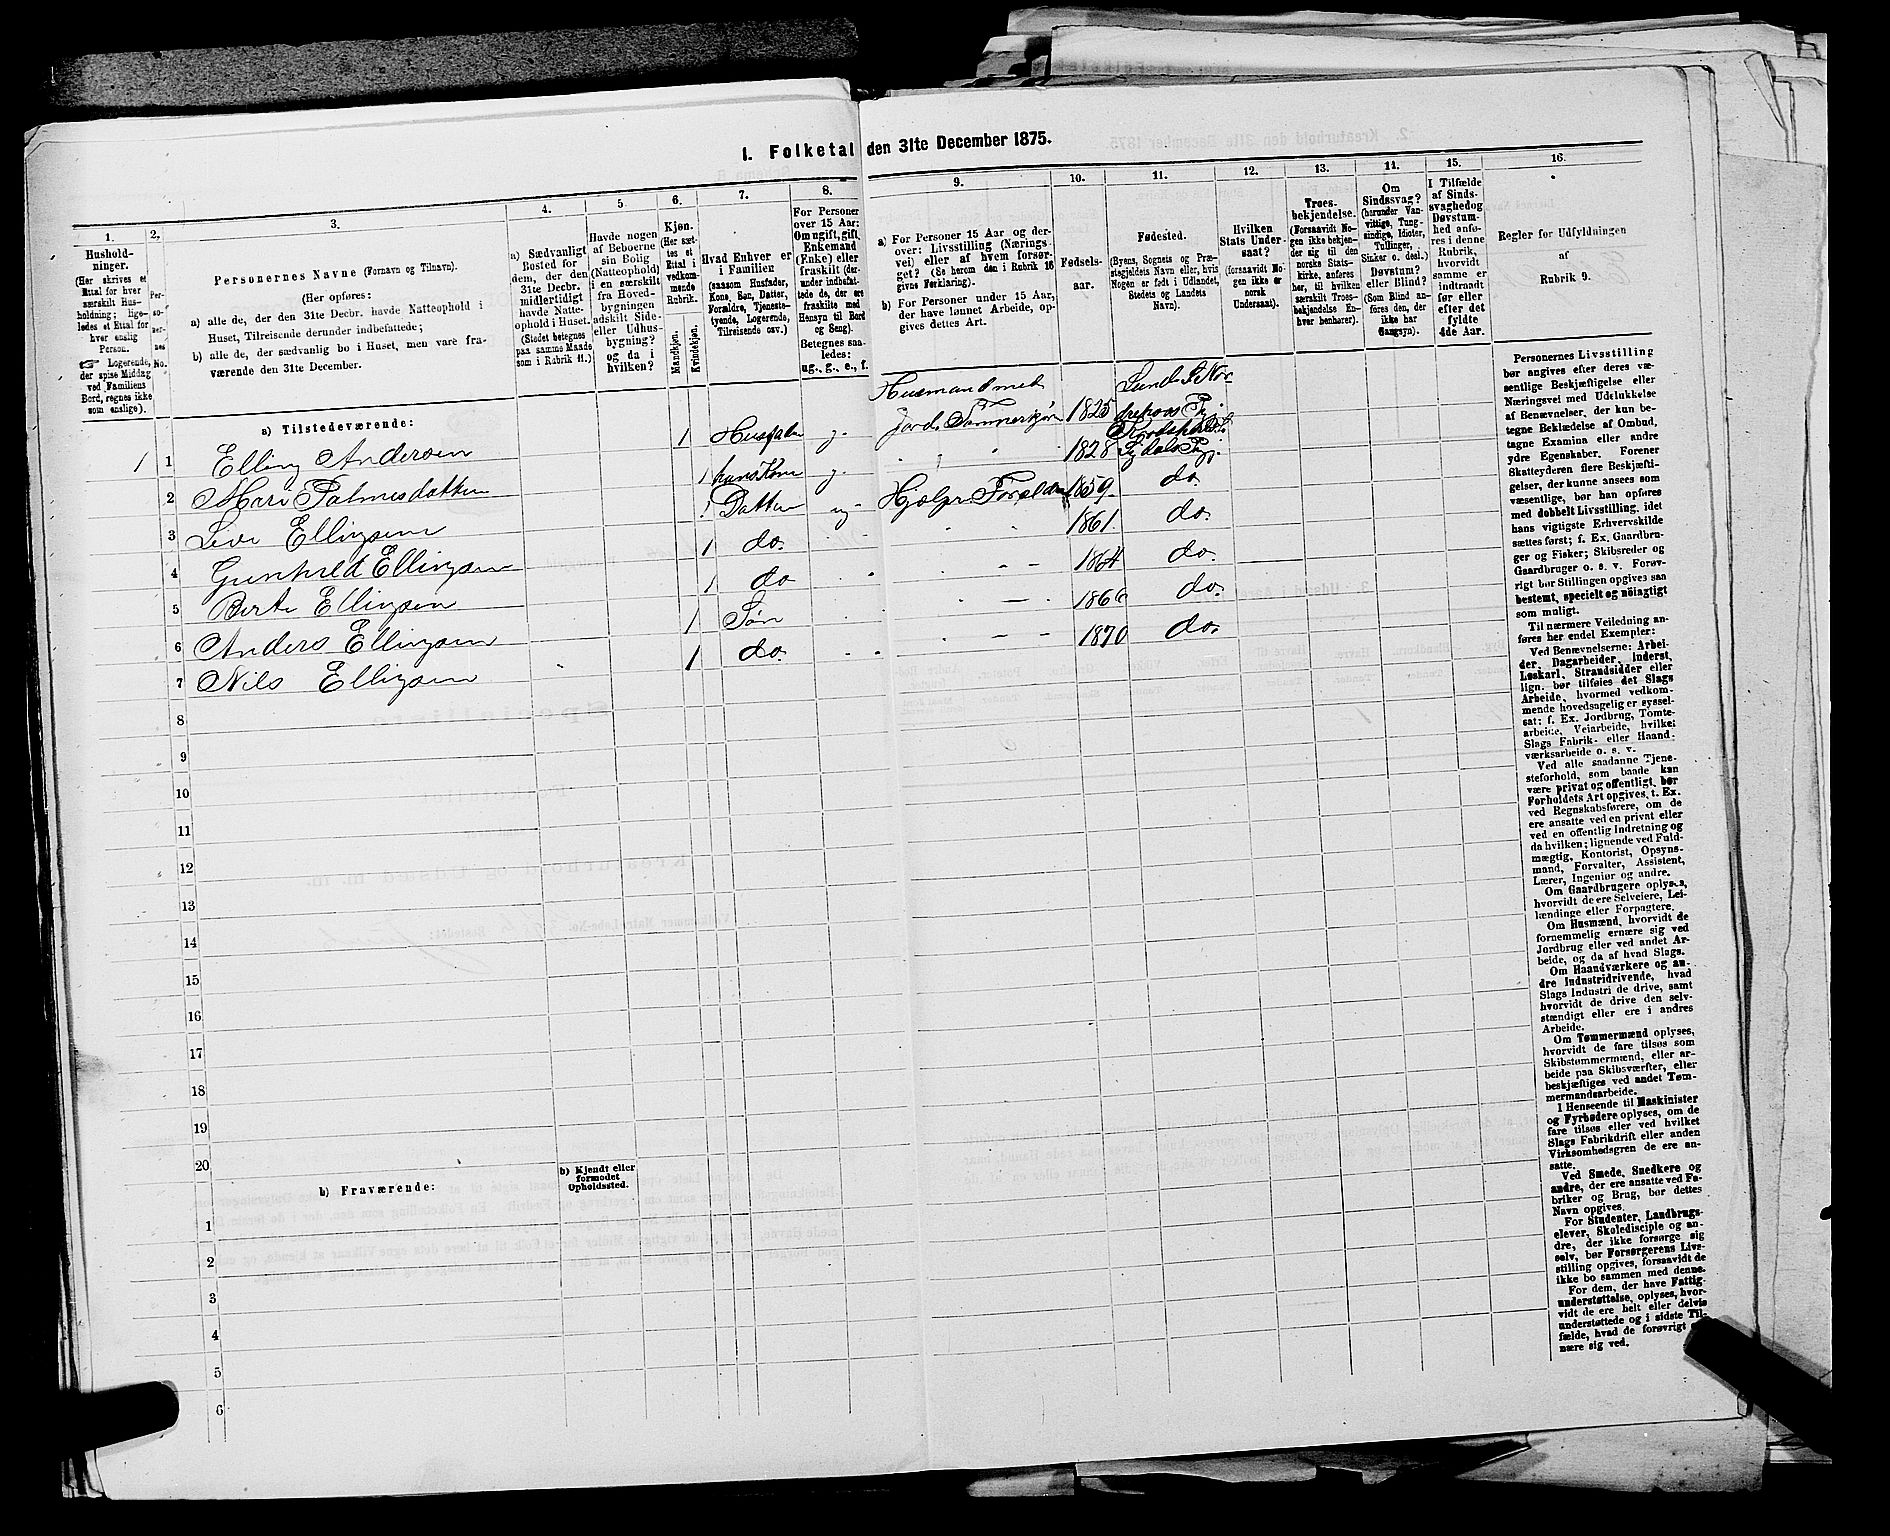 I. Folketal den 31te December 1875.
1.
Hushold-
ninger.
(Her skrives et
Ettal for hver
særskilt Hus-
holdning; lige-
ledes et Ettal for
hver enslig
Person.
Logerende,
der spise Middag
ved Familiens
Bord, regnes ikke
som enslige).
2.
Per-
so-
ner-
nes
No.
3.
Personernes Navne (Fornavn og Tilnavn).
(Her opføres:
a) alle de, der den 31te Decbr. havde Natteophold i
Huset, Tilreisende derunder indbefattede;
b) alle de, der sædvanlig bo i Huset, men vare fra-
værende den 31te December.
4.
a) Sædvanligt
Bosted for
dem, der den
31te Decbr.
midlertidigt
havde Natte-
ophold i Huset.
(Stedet betegnes
paa samme Maade
som i Rubrik 11.)
5.
Havde nogen
af Beboerne
sin Bolig
(Natteophold)
i en særskilt
fra Hoved-
bygningen
adskilt Side-
eller Udhus-
bygning?
og da i
hvilken?
6.
Kjøn.
(Her sæt-
tes et
Ettal i
vedkom-
mende
Rubrik.
Mandkjøn.
Kvindekjøn.
7.
Hvad Enhver er
i Familien
(saasom Husfader,
Kone, Søn, Datter,
Forældre, Tjeneste-
tyende, Logerende,
Tilreisende osv.)
8.
For Personer
over 15 Aar:
Om ugift, gift,
Enkemand
(Enke) eller
fraskilt (der-
under indbefat-
tede de, der ere
fraskilte med
Hensyn til Bord
og Seng).
Betegnes saa-
ledes:
ug., g., e., f.
9.
a) For Personer 15 Aar og der-
over: Livsstilling (Nærings-
vei) eller af hvem forsør-
get? (Se herom den i Rubrik 16
givne Forklaring).
b) For Personer under 15 Aar,
der have lønnet Arbeide, op-
gives dettes Art.
10.
Fødsels-
aar.
11.
Fødested.
(Byens, Sognets og Præ-
stegjeldets Navn eller, hvis
Nogen er født i Udlandet,
Stedets og Landets
Navn).
12.
Hvilken
Stats Under-
saat?
(forsaavidt No-
gen ikke er
norsk
Undersaat).
13.
Troes-
bekjendelse.
(Forsaavidt No-
gen ikke bekjen-
der sig til den
norske Stats-
kirke, anføres
her, til hvilken
særskilt Troes-
bekjendelse En-
hver henhører).
14.
Om
Sindssvag?
(herunder Van-
vittige, Tung-
sindige, Idioter,
Tullinger,
Sinker o. desl.)
Døvstum?
eller Blind?
(Som Blind an-
føres den, der
ikke har
Gangsyn).
15.
I Tilfælde
af Sinds-
svaghed og
Døvstum-
hed anfø-
res i denne
Rubrik,
hvorvidt
samme er
indtraadt
før eller
efter det
fyldte
4de Aar.
16.
Regler for Udfyldningen
af
Rubrik 9.
a) Tilstedeværende:
1 1 Elling Andersen 1 Husfader g. Husmand med Jord 1825
2 1 hans Kone g. 1828
3 Live Ellingsen 1 Datter ug 1859 do.
4 Gunhild Ellingsen 1 do. 1861. do.
5 Berte Ellingsen 1 do 1864 do.
6 Anders Ellingsen 1 Søn 1866 do.
7 Nils Ellingsen 1 do. 1870 do.
8
9
10
11
12
13
14
15
16
17
18
19
20
b) Fraværende:
b) Kjendt eller
formodet
Opholdssted.
1
2
3
4
5
6
Personernes Livsstilling
bør angives efter deres væ-
sentlige Beskjæftigelse eller
Næringsvei med Udelukkelse
af Benævnelser, der kun be-
tegne Beklædelse af Ombud,
tagne Examina eller andre
ydre Egenskaber. Forener
Skatteyderen flere Beskjæfti-
gelser, der kunne ansees som
væsentlige, bør han opføres
med dobbelt Livsstilling, idet
hans vigtigste Erhvervskilde
sættes først; f. Ex. Gaardbru-
ger og Fisker; Skibsreder og
Gaardbruger o. s. v. Forøv-
rigt bør Stillingen opgives saa
bestemt, specielt og nöiagtigt
som muligt.
Til nærmere Veiledning an-
føres her endel Exempler:
Ved Benævnelserne: Arbei-
der, Dagarbeider, Inderst,
Løskarl, Strandsidder eller
lign. bør tilføies det Slags
Arbeide, hvormed vedkom-
mende hovedsagelig er syssel-
sat; f. Ex. Jordbrug, Tomte-
arbeide, Veiarbeide, hvilket
Slags Fabrik- eller Haand-
værksarbeide o. s. v.
Ved alle saadanne Tjene-
steforhold, som baade kan
være privat og offentligt, bør
Forholdets Art opgives, t. Ex.
ved Regnskabsførere, om de
ere ansatte ved en privat eller
ved en offentlig Indretning og
da hvilken; lignende ved Fuld-
mægtig, Kontorist, Opsyns-
mand, Forvalter, Assistent,
Lærer, Ingeniør og andre.
Om Gaardbrugere oplyses,
hvorvidt de ere Selveiere, Lei-
lændinge eller Forpagtere.
Om Husmænd, hvorvidt de
fornemmelig ernære sig ved
Jordbrug eller ved andet Ar-
beide, og da af hvad Slags.
Om Haandværkere og an-
dre Industridrivende, hvad
Slags Industri de drive, samt
hvorvidt de drive den selv-
stændigt eller ere i andres
Arbeide.
Om Tømmermænd oplyses,
hvorvidt de fare tilsøs som
Skibstømmermænd, eller ar-
beide paa Skibsværfter, eller
beskjæftiges ved andet Tøm-
mermandsarbeide.
I Henseende til Maskinister
og Fyrbødere oplyses, om de
fare tilsøs eller ved hvilket
Slags Fabrikdrift eller anden
Virksomhedsgren de ere an-
satte.
Ved Smede, Snedkere og
andre, der ere ansatte ved Fa-
briker og Brug, bør dettes
Navn opgives.
For Studenter, Landbrugs-
elever, Skoledisciple og an-
dre, der ikke forsørge sig
selv, bør Forsørgerens Livs-
stilling opgives, forsaavidt de
ikke bo sammen med denne.
For dem, der have Fattig-
understøttelse, oplyses, hvor-
vidt de ere helt eller delvis
understøttede og i sidste Til-
fælde, hvad de forøvrigt
nære sig ved.